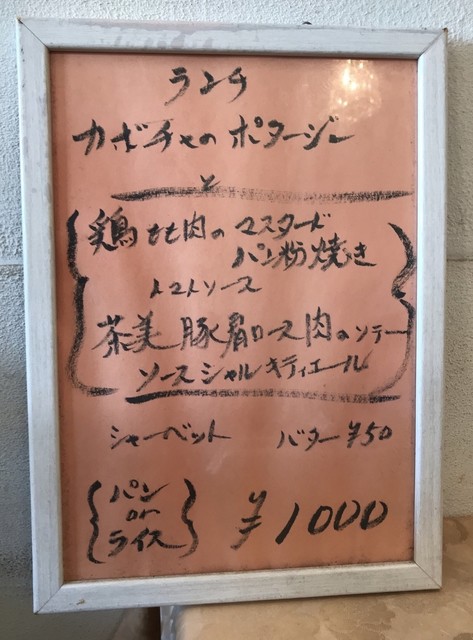 ランチ
カボチャのポタージュ
と
鶏もも肉のマスタード
パン粉焼き
トマトソース
茶美豚肩ロース肉のソテー
ソースシャルキティエール
シャーベット バター¥50
パン
or
ライス
¥1000